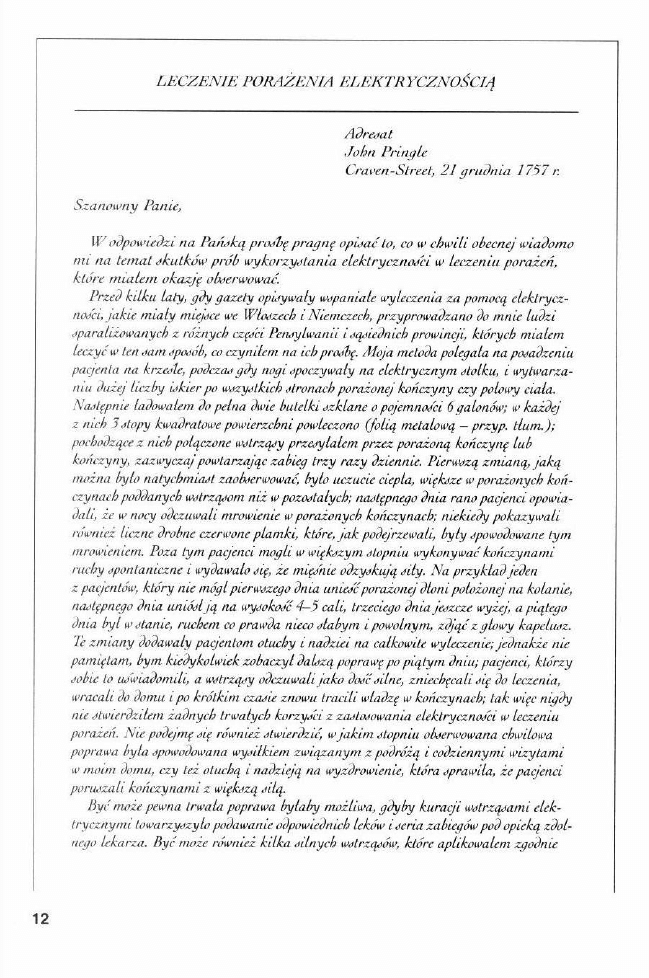 LECZENIE PORAŻENIA ELEKTRYCZNOŚCIĄ
Adresat
John Pringle
Craven-Street, 21 grudnia 1757 r.
Szanowny Panie,
W odpowiedzi na Pańską prośbę pragnę opisać to, co w chwili obecnej wiadomo
mi na temat skutków prób wykorzystania elektryczności w leczeniu porażeń,
które miałem okazję obserwować.
Przed kilku laty, gdy gazety opisywały wspaniałe wyleczenia za pomocą elektrycz-
ności, jakie miały miejsce we Włoszech i Niemczech, przyprowadzano do mnie ludzi
sparaliżowanych z różnych części Pensylwanii i sąsiednich prowincji, których miałem
leczyć w ten sam sposób, co czyniłem na ich prośbę. Moja metoda polegała na posadzeniu
pacjenta na krześle, podczas gdy nogi spoczywały na elektrycznym stołku, i wytwarza-
niu dużej liczby iskier po wszystkich stronach porażonej kończyny czy połowy ciała.
Następnie ładowałem do pełna dwie butelki szklane o pojemności 6 galonów; w każdej
z nich 3 stopy kwadratowe powierzchni powleczono (folią metalową – przyp. tłum.);
pochodzące z nich połączone wstrząsy przesyłałem przez porażoną kończynę lub
kończyny, zazwyczaj powtarzając zabieg trzy razy dziennie. Pierwszą zmianą, jaką
można było natychmiast zaobserwować, było uczucie ciepła, większe w porażonych koń-
czynach poddanych wstrząsom niż w pozostałych; następnego dnia rano pacjenci opowia-
dali, że w nocy odczuwali mrowienie w porażonych kończynach; niekiedy pokazywali
również liczne drobne czerwone plamki, które, jak podejrzewali, były spowodowane tym
mrowieniem. Poza tym pacjenci mogli w większym stopniu wykonywać kończynami
ruchy spontaniczne i wydawało się, że mięśnie odzyskują siły. Na przykład jeden
z pacjentów, który nie mógł pierwszego dnia unieść porażonej dłoni położonej na kolanie,
następnego dnia uniósł ją na wysokość 4–5 cali, trzeciego dnia jeszcze wyżej, a piątego
dnia był w stanie, ruchem co prawda nieco słabym i powolnym, zdjąć z głowy kapelusz.
Te zmiany dodawały pacjentom otuchy i nadziei na całkowite wyleczenie; jednakże nie
pamiętam, bym kiedykolwiek zobaczył dalszą poprawę po piątym dniu; pacjenci, którzy
sobie to uświadomili, a wstrząsy odczuwali jako dość silne, zniechęcali się do leczenia,
wracali do domu i po krótkim czasie znowu tracili władzę w kończynach; tak więc nigdy
nie stwierdziłem żadnych trwałych korzyści z zastosowania elektryczności w leczeniu
porażeń. Nie podejmę się również stwierdzić, w jakim stopniu obserwowana chwilowa
poprawa była spowodowana wysiłkiem związanym z podróżą i codziennymi wizytami
w moim domu, czy też otuchą i nadzieją na wyzdrowienie, która sprawiła, że pacjenci
poruszali kończynami z większą siłą.
Być może pewna trwała poprawa byłaby możliwa, gdyby kuracji wstrząsami elek-
trycznymi towarzyszyło podawanie odpowiednich leków i seria zabiegów pod opieką zdol-
nego lekarza. Być może również kilka silnych wstrząsów, które aplikowałem zgodnie
12